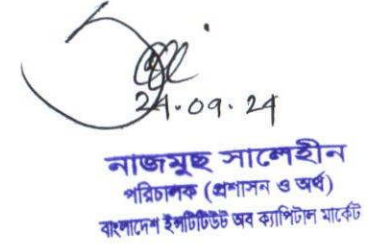 24.09.24
নাজমুছ সালেহীন
পরিচালক (প্রশাসন ও অর্থ)
বাংলাদেশ ইনস্টিটিউট অব ক্যাপিটাল মার্কেট